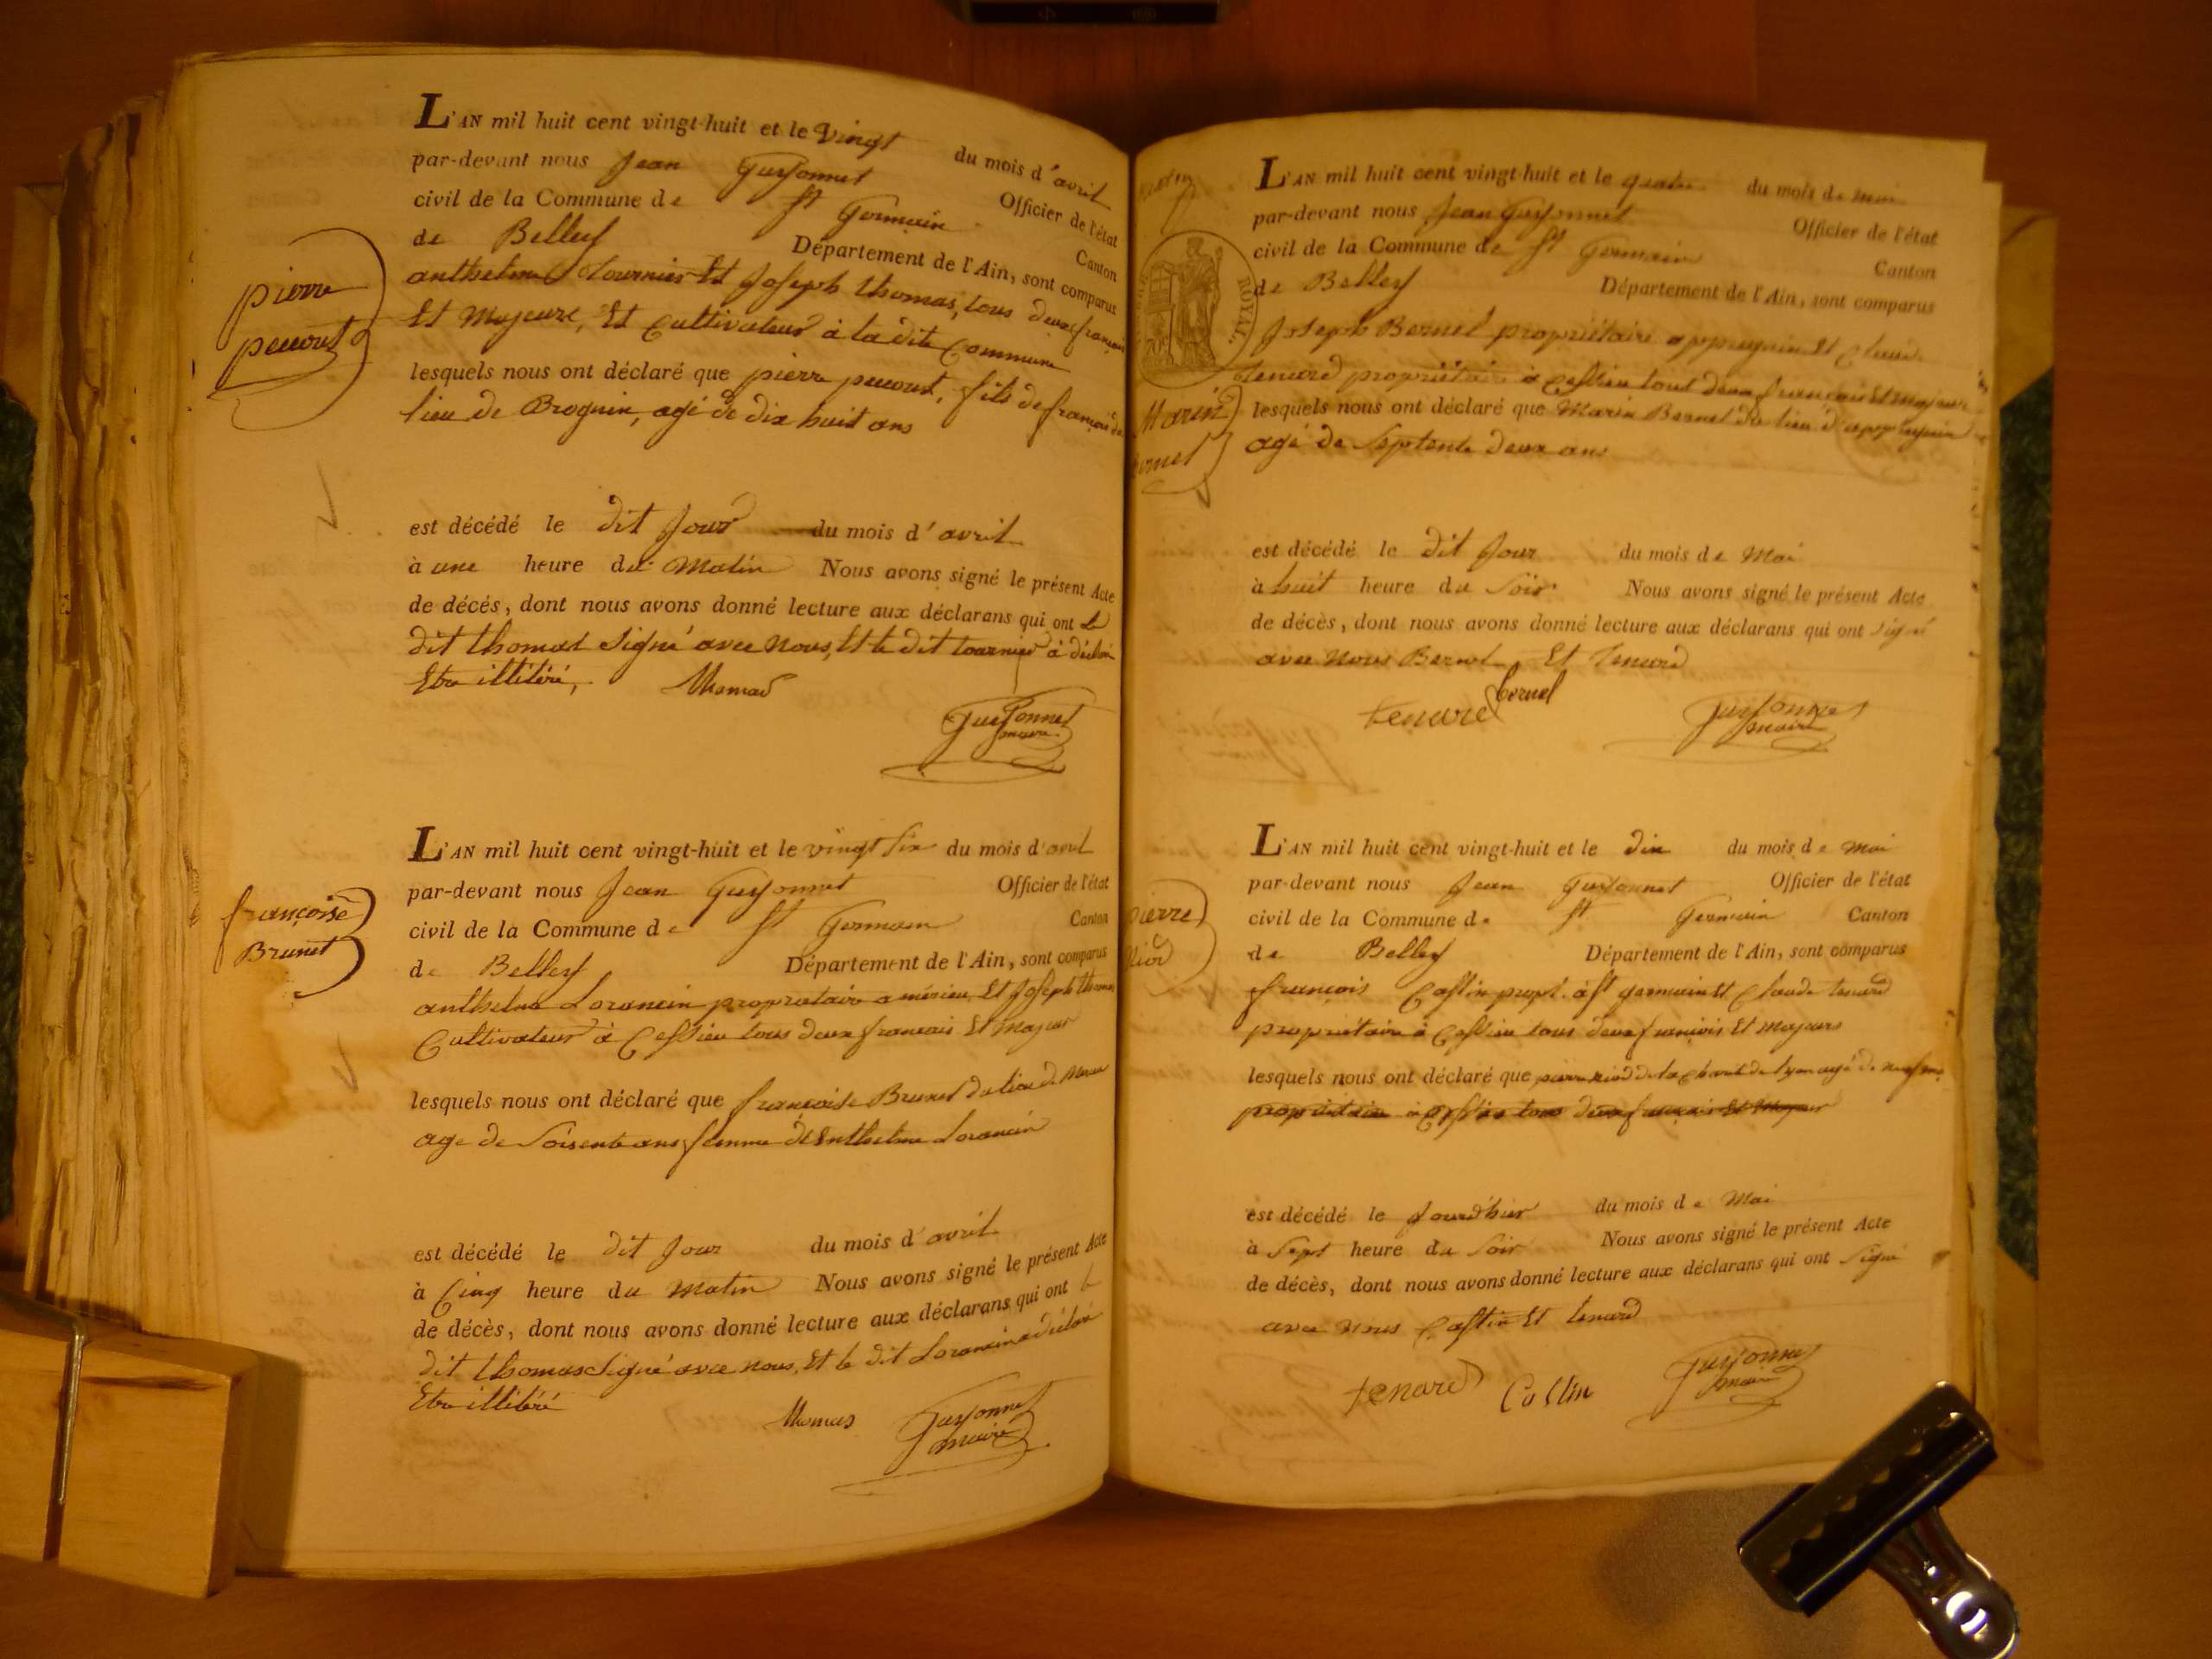 L'AN mil huit cent vingt-huit et le vingt du mois d'avril
par-devant nous Jean Guyonnet Officier de l'état
civil de la Commune de St Germain Canton
de Belley Département de l'Ain, sont comparus
anthelme Tournier Et Joseph thomas, tous deux français
Et Majeure, Et Cultivateur à la dite Commune
lesquels nous ont déclaré que pierre, fils de françois du
lieu de Brognin, agé de dix huit ans
pierre
est décédé le dit Jour du mois d'avril
à une heure du Matin Nous avons signé le présent Acte
de décés, dont nous avons donné lecture aux déclarans qui ont le
dit thomas signé avec nous, Et le dit tournier à déclaré
Etre illitéré,
thomas
Guyonnet
maire
L'AN mil huit cent vingt-huit et le vingt six du mois d'avril
par-devant nous Jean Guyonnet Officier de l'état
civil de la Commune de St Germain Canton
de Belley Département de l'Ain, sont comparus
anthelme Lorancin propriétaire a mérieu, Et Joseph thomas
Cultivateur à Cessieu tous deux francais Et Majeur
françoise
Brunet
lesquels nous ont déclaré que francoise Brunet du lieu de
age de soisente ans femme de Enthelme Lorancin
est décédé le dit Jour du mois d'avril
à Cinq heure du Matin Nous avons signé le présent Acte
de décès, dont nous avons donné lecture aux déclarans qui ont le
dit thomas signé avec nous, Et le dit Lorancin a déclaré
Etre illitéré
thomas
Guyonnet
maire
L'AN mil huit cent vingt-huit et le quatre du mois de mai
par-devant nous Jean Guyonnet Officier de l'état
civil de la Commune de St Germain Canton
de Belley Département de l'Ain, sont comparus
ROYAL.
Joseph Bernel propriétaire a appreguin Et Claude
tenard propriétaire à Cessieu tous deux francais Et majeur
lesquels nous ont déclaré que Marin Bernel du lieu d'appreguin
agé de septente deux ans
Marin
est décédé le dit Jour du mois de Mai
à huit heure du soir Nous avons signé le présent Acte
de décès, dont nous avons donné lecture aux déclarans qui ont signé
avec nous Bernel Et tenard
tenard bernel
Guyonnet
maire
L'AN mil huit cent vingt-huit et le dix du mois de mai
par-devant nous Jean Guyonnet Officier de l'état
civil de la Commune de St Germain Canton
de Belley Département de l'Ain, sont comparus
françois Castin propt. à St germain Et Claude tenard
propriétaire à Cessieu tous deux francois Et majeurs
pierre
lesquels nous ont déclaré que pierre niod de la charité de Lyon agé de neuf
propriétaire à Cessieu tous deux francais Et Majeur
est décédé le Jourd'hier du mois de Mai
à sept heure du soir Nous avons signé le présent Acte
de décès, dont nous avons donné lecture aux déclarans qui ont signé
avec nous Castin Et tenard
tenard Castin
Guyonnet
maire